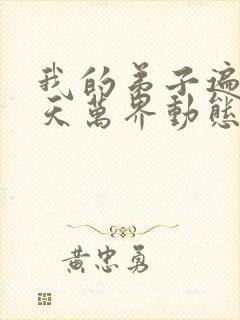 我的弟子遍
天萬界動態
黃忠勇